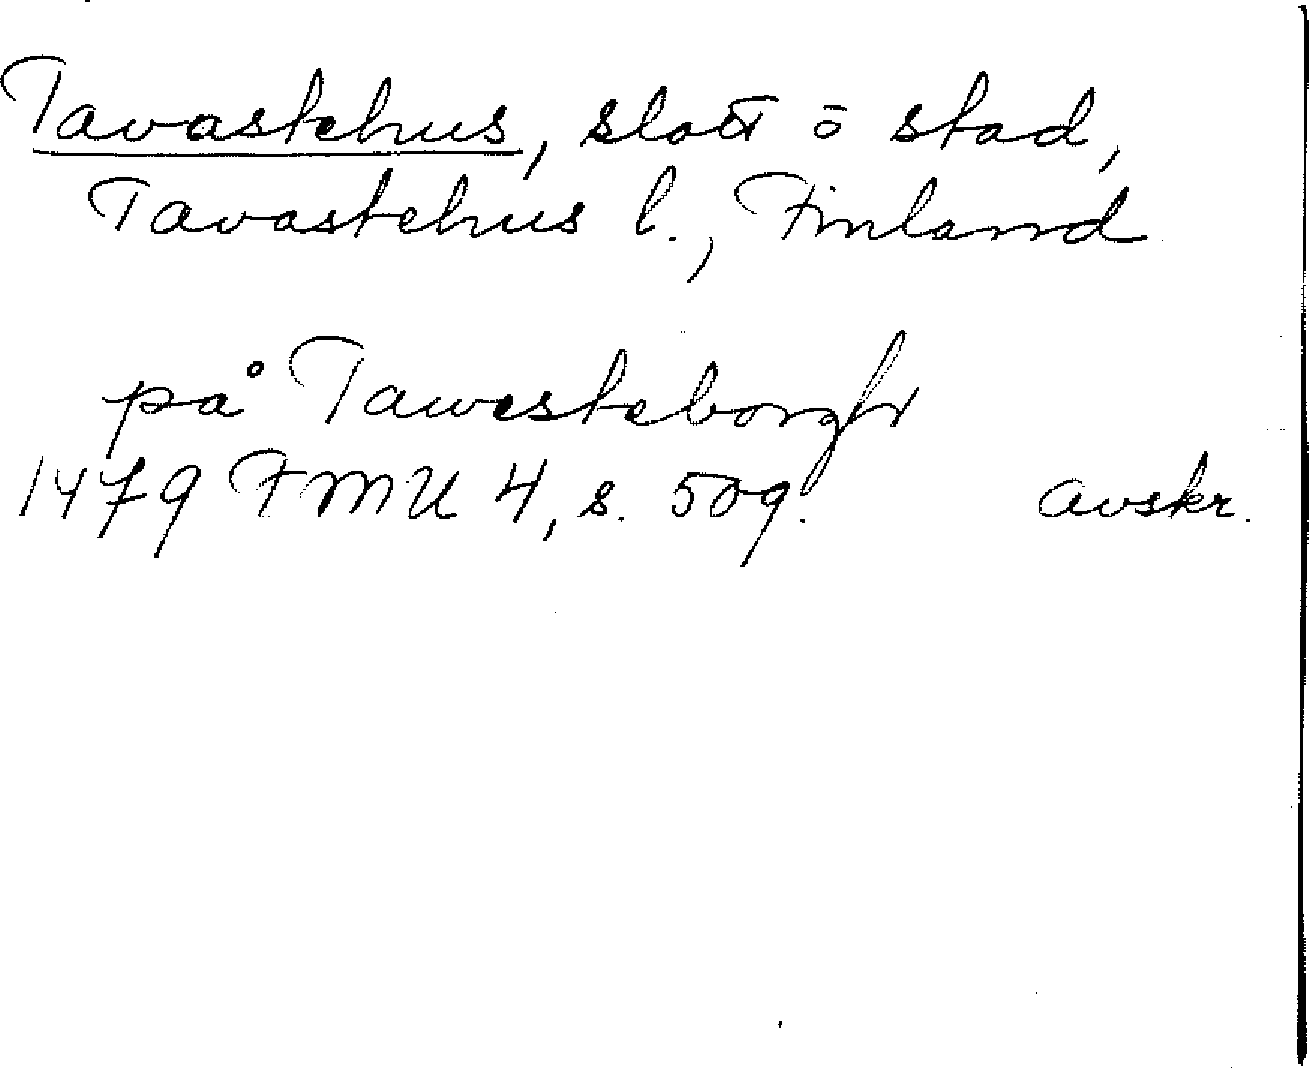 Tavastehus, slott o stad,
Tavastehus l., Finland
på Tawesteborgh
1479 FMU 4, s. 509. avskr.